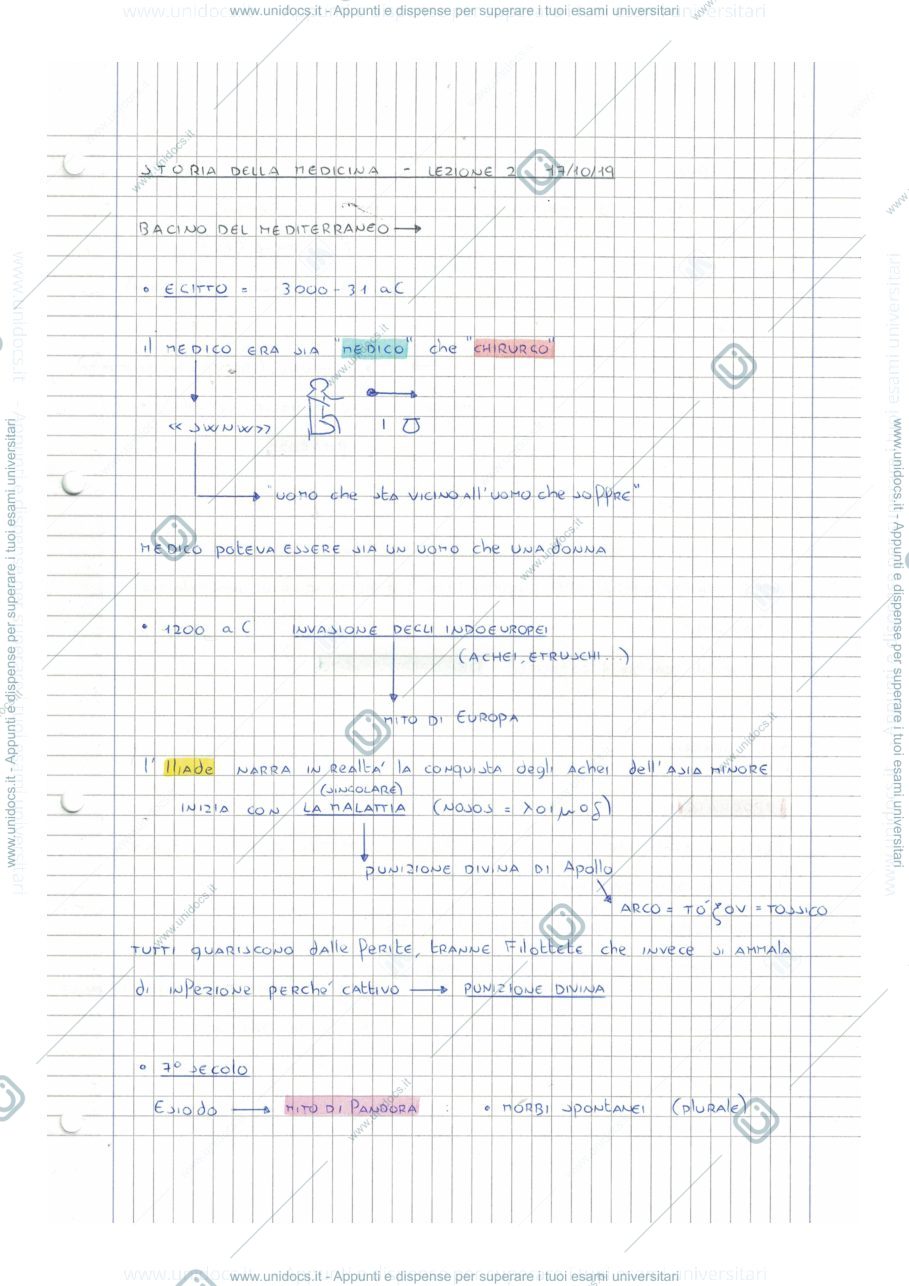 www.unidocs.it - Appunti e dispense per superare i tuoi esami universitari
STORIA DELLA MEDICINA - LEZIONE 2 17/10/19
BACINO DEL MEDITERRANEO →
• EGITTO = 3000 - 31 aC
il MEDICO ERA SIA "MEDICO" che "CHIRURGO"
<< SWNW>>
"UOMO che STA VICINO All'UOMO che SOFFRE"
MEDICO POTEVA ESSERE SIA UN UOMO che UNA DONNA
• 1200 aC INVASIONE DEGLI INDOEUROPEI
(ACHEI, ETRUSCHI...)
MITO DI EUROPA
l' Iliade NARRA IN REALTA' la CONQUISTA degli Achei dell'ASIA MINORE
(SINGOLARE)
INIZIA CON LA MALATTIA (NOSOS = λοιμος)
PUNIZIONE DIVINA DI Apollo
ARCO = TO'ξOV = TOSSICO
TUTTI GUARISCONO dalle FERITE, TRANNE Filottete che INVECE SI AMMALA
di INFEZIONE PERChé CATTIVO → PUNIZIONE DIVINA
• 7° SECOLO
ESIODO → MITO DI PANDORA : • MORBI SPONTANEI (PLURALE)
www.unidocs.it - Appunti e dispense per superare i tuoi esami universitari